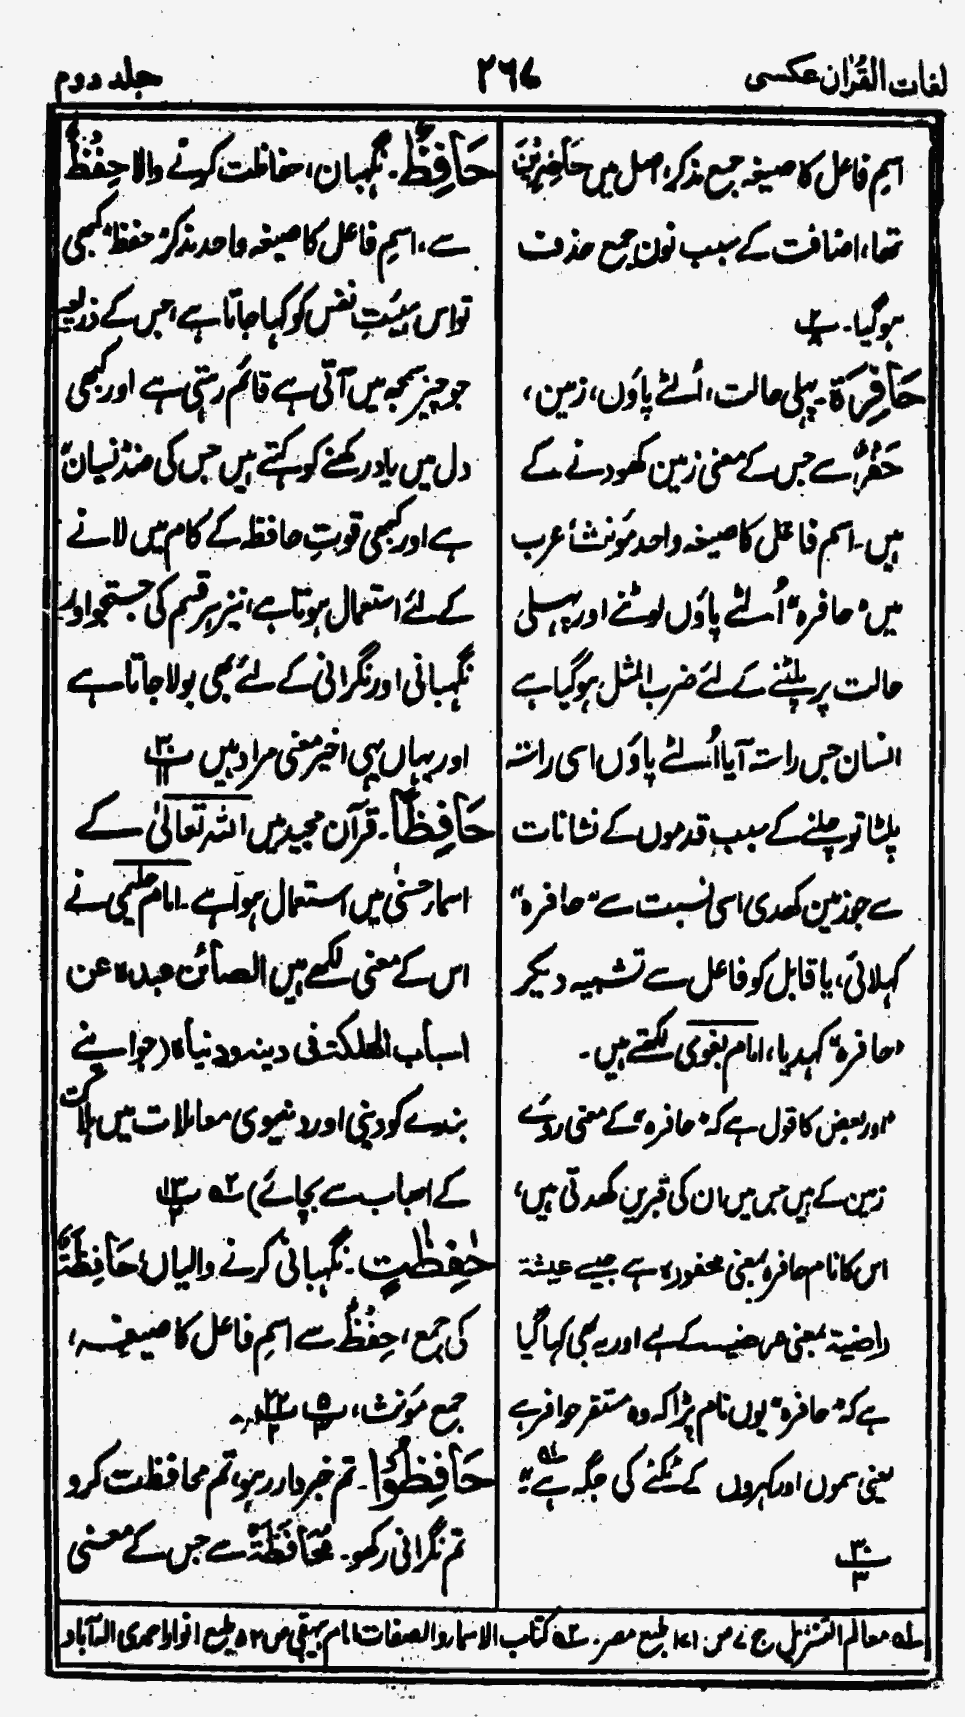 لغات القرآن عکسی
۲۶۷
جلد دوم
اسمِ فاعل کا صیغہ جمع مذکر، اصل میں حَاضِرِیْنَ
تھا، اضافت کے سبب نون جمع حذف
ہوگیا۔ ۲/۸
حَافِرَۃ۔ پہلی حالت، اُلٹے پاؤں، زمین،
حَفْرٌ سے جس کے معنی زمین کھودنے کے
ہیں۔ اسم فاعل کا صیغہ واحد مؤنث، عرب
میں "حافرہ" اُلٹے پاؤں لوٹنے اور پہلی
حالت پر پلٹنے کے لئے ضرب المثل ہوگیا ہے
انسان جس راستہ آیا اُلٹے پاؤں اسی راستہ
پلٹا تو چلنے کے سبب قدموں کے نشانات
سے جو زمین کھدی اسی نسبت سے "حافرہ"
کہلائی، یا قابل کو فاعل سے تشبیہ دیکر
"حافرہ" کہدیا، امام بغوی لکھتے ہیں۔
"اور بعض کا قول ہے کہ "حافرہ" کے معنی روئے
زمین کے ہیں جس میں ان کی قبریں کھدتی ہیں،
اس کا نام حافرہ بمعنی محفورہ ہے جیسے عیشۃ
راضیۃ بمعنی مرضیہ کے ہے اور یہ بھی کہا گیا
ہے کہ "حافرہ" یوں نام پڑا کہ وہ مستقر حوافر ہے
یعنی سموں اور کھروں کے ٹکنے کی جگہ ہے" ؎۱
۳۰/۳
حَافِظٌ۔ نگہبان، حفاظت کرنے والا حِفْظٌ
سے، اسمِ فاعل کا صیغہ واحد مذکر، "حفظ" کبھی
تو اس ہیئتِ نفس کو کہا جاتا ہے، جس کے ذریعہ
جو چیز سمجھ میں آتی ہے قائم رہتی ہے اور کبھی
دل میں یاد رکھنے کو کہتے ہیں جس کی ضد "نسیان"
ہے اور کبھی قوتِ حافظہ کے کام میں لانے
کے لئے استعمال ہوتا ہے، نیز ہر قسم کی جستجو اور
نگہبانی اور نگرانی کے لئے بھی بولا جاتا ہے
اور یہاں یہی اخیر معنی مراد ہیں ۳۰/۱۱
حَافِظًا۔ قرآن مجید میں اللہ تعالیٰ کے
اسمار حسنیٰ میں استعمال ہوا ہے۔ امام حلیمی نے
اس کے معنی لکھے ہیں الصائن عبدہ عن
اسباب الھلکۃ فی دینہ ودنیاہ (جو اپنے
بندے کو دینی اور دنیوی معاملات میں ہلاکت
کے اسباب سے بچائے) ؎۲ ۱۳/۲
حٰفِظٰتٍ۔ نگہبانی کرنے والیاں، حَافِظَۃٌ
کی جمع، حِفْظٌ سے اسمِ فاعل کا صیغہ،
جمع مؤنث، ۵/۳ ۲۲/۲
حَافِظُوْا۔ تم خبردار رہو، تم محافظت کرو
تم نگرانی رکھو۔ مُحَافَظَۃٌ سے جس کے معنی
؎۱ معالم التنزیل ج ۷ ص ۱۷۱ طبع مصر۔ ؎۲ کتاب الاسماء والصفات امام بیہقی ص ۵۲ طبع انوار احمدی الہ آباد